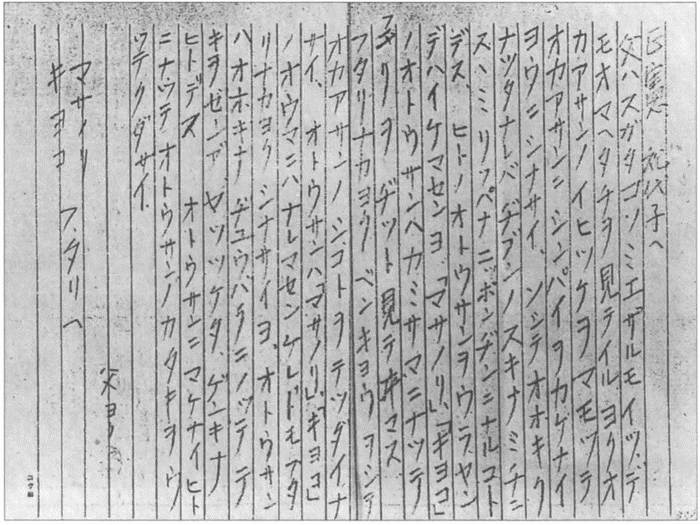 正憲 紀代子へ
父ハスガタコソミエザルモイツデ
モオマヘタチヲ見テイル ヨクオ
カアサンノイヒツケヲマモツテ
オカアサンニシンパイヲカケナイ
ヨウニシナサイ、ソシテオオキク
ナツタナレバ ヂブンノスキナミチニ
ススミ リツパナニツポンヂンニナルコト
デス、 ヒトノオトウサンヲウラヤン
デハイケマセンヨ、「マサノリ」「キヨコ」
ノオトウサンハカミサマニナツテ
フタリヲ ヂツト見テ井マス
フタリナカヨク ベンキヨウヲシテ
オカアサンノシゴトヲテツダイナ
サイ、オトウサンハ「マサノリ」「キヨコ」
ノオウマニハナレマセンケレドモフタ
リナカヨク シナサイヨ、オトウサン
ハオホキナ ヂユウバクニノツテ テ
キヲゼンブ ヤツツケタ ゲンキナ
ヒトデス オトウサンニ マケナイヒト
ニナツテ オトウサンノカタキヲウ
ツテクダサイ、
父ヨリ
マサノリ
キヨコ フタリヘ